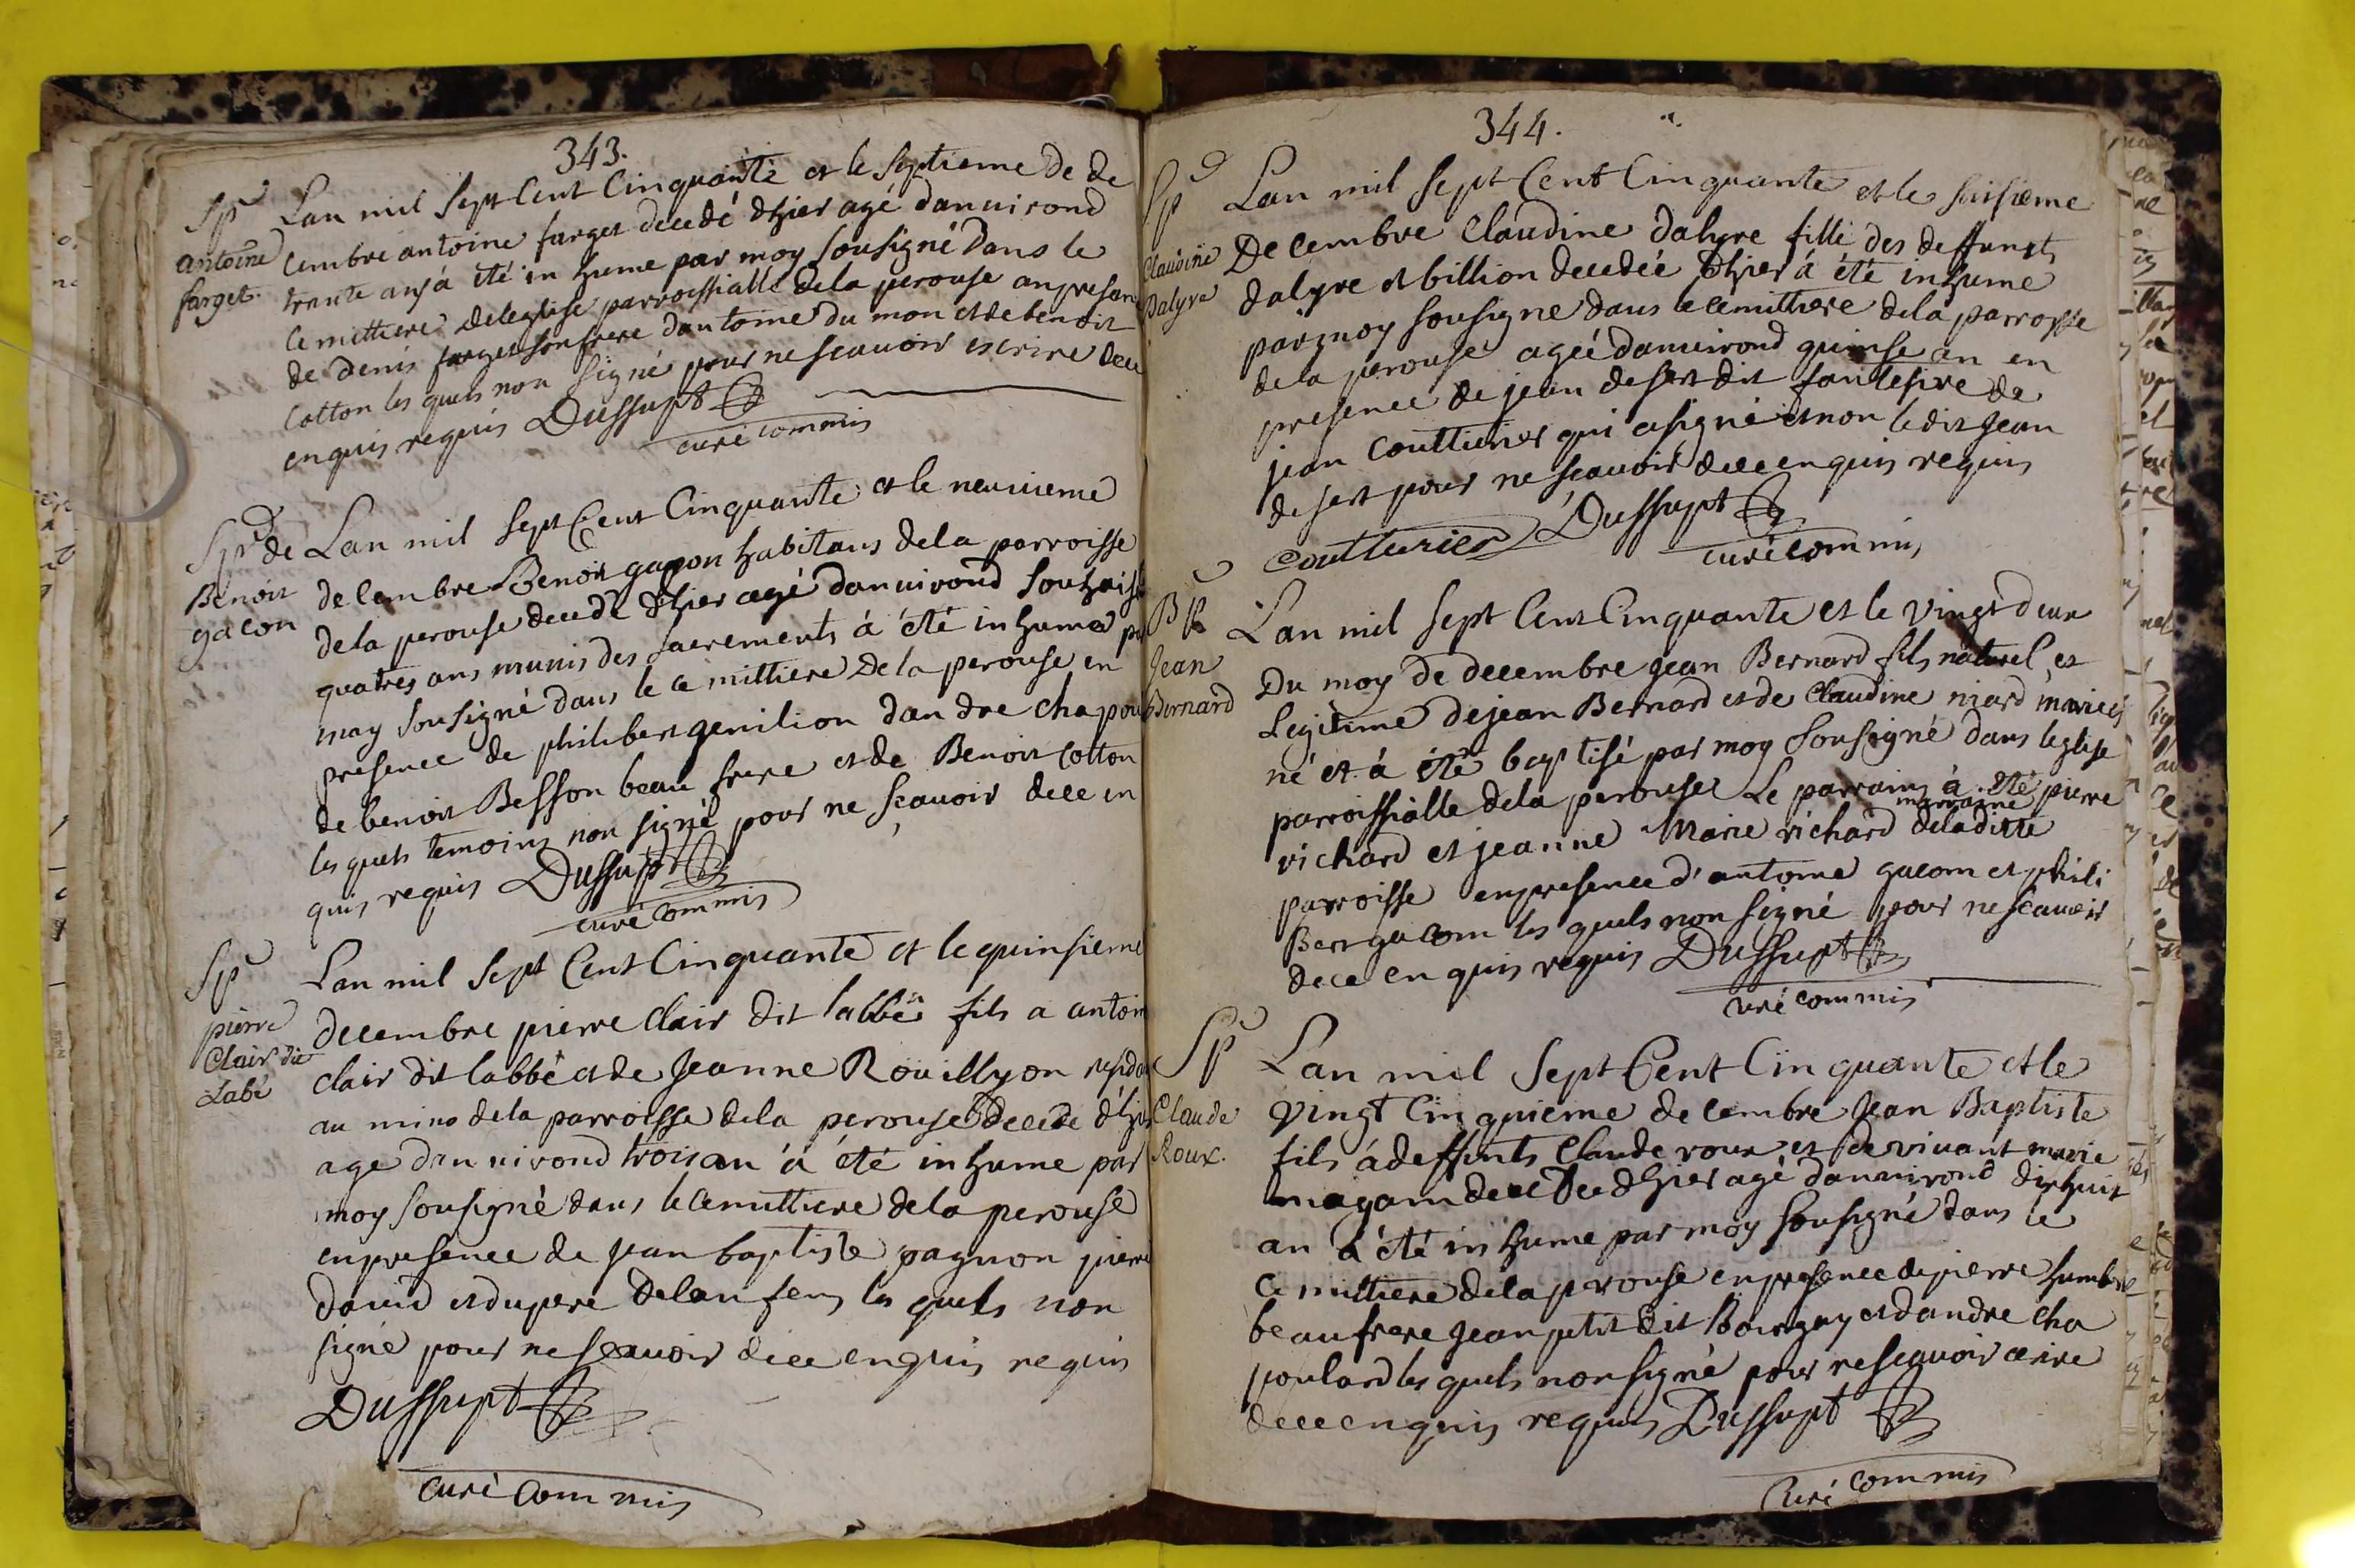 343.
Spr
antoine
farget.
Lan mil Sept Cent Cinquante et le Septieme de de
cembre antoine farget decedé dhier agé danuirond
trante ans á été in hume par moy Sousigné Dans le
Cemittiere deleglise parroissialle dela perouse en presen
de denis farget son frere dantoine du mon et de benoit
Cotton les quels non Signé pour ne scauoir escrire dece
enquis requis Dussupt
curé commis
Spr de
Benoit
gacon
Lan mil Sept Cent Cinquante et le neuuieme
decembre Benoit gacon habitans dela parroisse
dela perouse decedé dhier agé danuirond
quatres ans munis des Sacrements á été in humé
moy Sousigné dans le cemittiere dela perouse en
presence de philibert genilion dandre chapou
de benoit Besson beau frere et de Benoit Cotton
les quels temoins non signé pour ne scauoir dece en
quis requis Dussupt
curé commis
Sp
pierre
Clair dit
Labé
Lan mil Sept Cent Cinquante et le quinsieme
decembre pierre Clair dit labbé fils a antoin
clair dit labbé et de Jeanne Roüillyon
au mino dela parroisse dela perouse decede d'hier
age danuirond trois an á été in hume par
moy Sousigné dans le Cemittiere dela perouse
en presence de Jean baptiste pagnon pierre
dauid et dupere delanfens les quels non
signé pour ne scauoir dece enquis requis
Dussupt
curé Commis
344.
Sp
Claudine
Dalyre
Lan mil Sept Cent Cinquante et le saisieme
Decembre Claudine dalyre fille des deffunts
dalyre et billion decedée dhier á été inhume
par moy Sousigne dans le cemittiere dela parroisse
dela perouse ageé danuirond quinse an en
presence de jean desert dit de
jean Coutturier qui a signé et non le dit Jean
desert pour ne scauoir dece enquis requis
Coutturier Dussupt
curé commis
Jean
Bernard
Lan mil Sept Cent Cinquante et le vingt deux
Du moy de decembre Jean Bernard fils naturel et
Legitime de jean Bernard et de Claudine niard mariés
né et á été baptisé par moy Sousigné dans leglise
parroissialle dela perouse Le parrain á été pierre
marraine
richard et jeanne Marie richard deladitte
parroisse en presence d'antoine gacom et phili
Bert gacom les quels non Signé pour ne scauoir
dece en quis requis Dussupt
curé commis
Sp
Claude
Roux.
Lan mil Sept Cent Cinquante et le
vingt Cinquieme decembre Jean Baptiste
fils á deffunts Claude roux et de viuant marie
decedé dhier agé danuirond dixhuit
an á été in hume par moy Sousigné dans le
Cemittiere dela perouse en presence de pierre humbert
beaufrere Jean petit dit Bourguy et dandre cha
poulard les quels non signé pour ne scauoir ecrire
dece enquis requis Dussupt
Curé commis